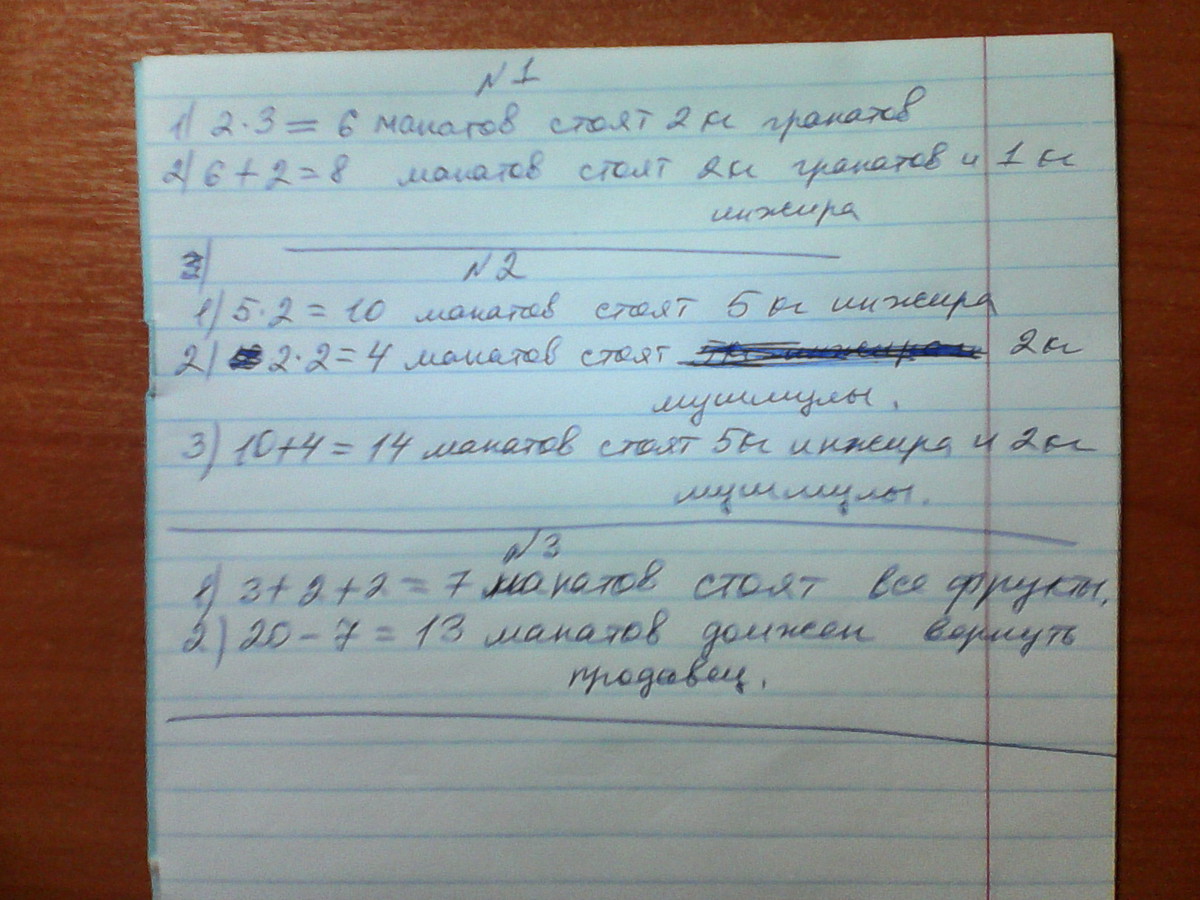 №1
1) 2·3 = 6 манатов стоят 2 кг гранатов
2) 6+2=8 манатов стоят 2кг гранатов и 1 кг
инжира
3)
№2
1) 5·2 = 10 манатов стоят 5 кг инжира
2) 2·2=4 манатов стоят 2кг
мушмулы.
3) 10+4=14 манатов стоят 5кг инжира и 2кг
мушмулы.
№3
1) 3+2+2=7 манатов стоят все фрукты.
2) 20-7=13 манатов должен вернуть
продавец.